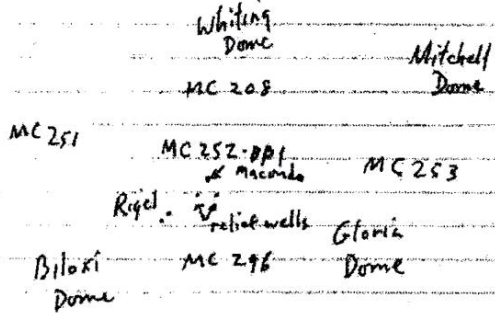 Whiting
Dome
Mitchell
Dome
MC 208
MC 251
MC 252-001
Macondo
MC 253
Rigel
relief wells
Gloria
Dome
Biloxi
Dome
MC 296